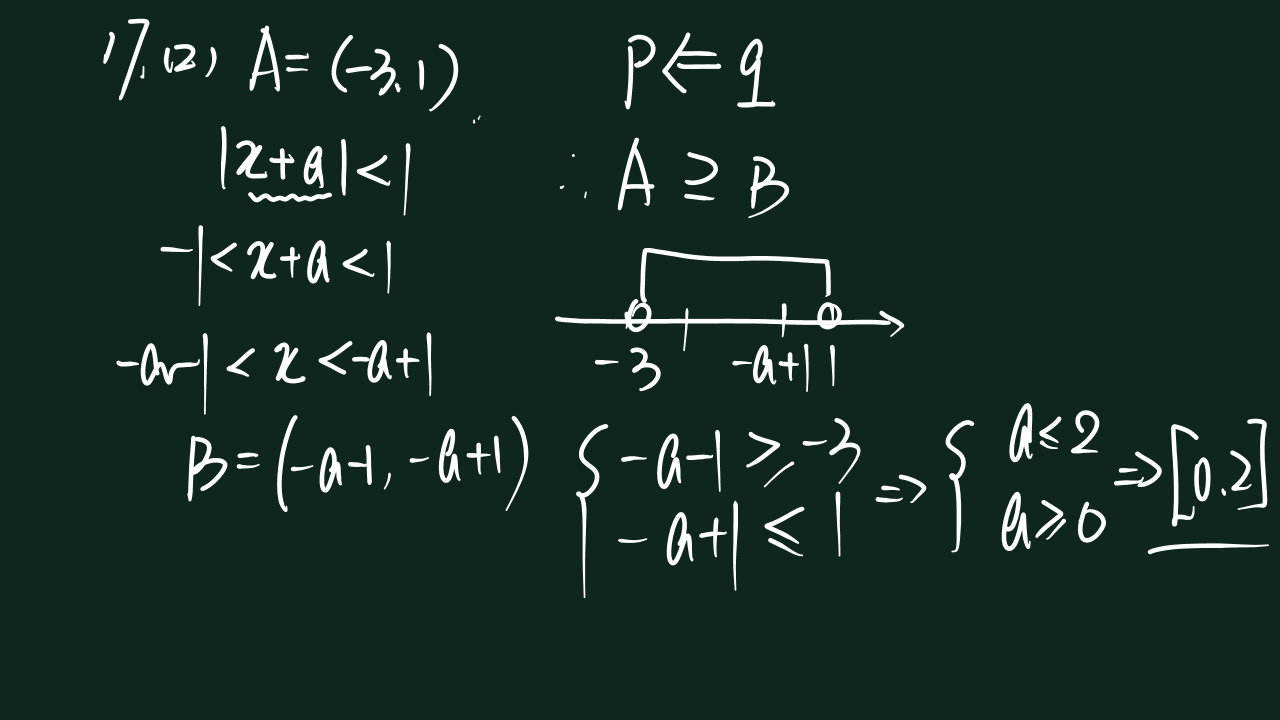 17.(2) A=(-3,1)
|x+a|<1
-1<x+a<1
-a-1<x<-a+1
B=(-a-1,-a+1)
P⇐q
∴A⊇B
-3 -a+1 1
{-a-1≥-3
-a+1≤1
⇒{a≤2
a≥0
⇒[0.2]